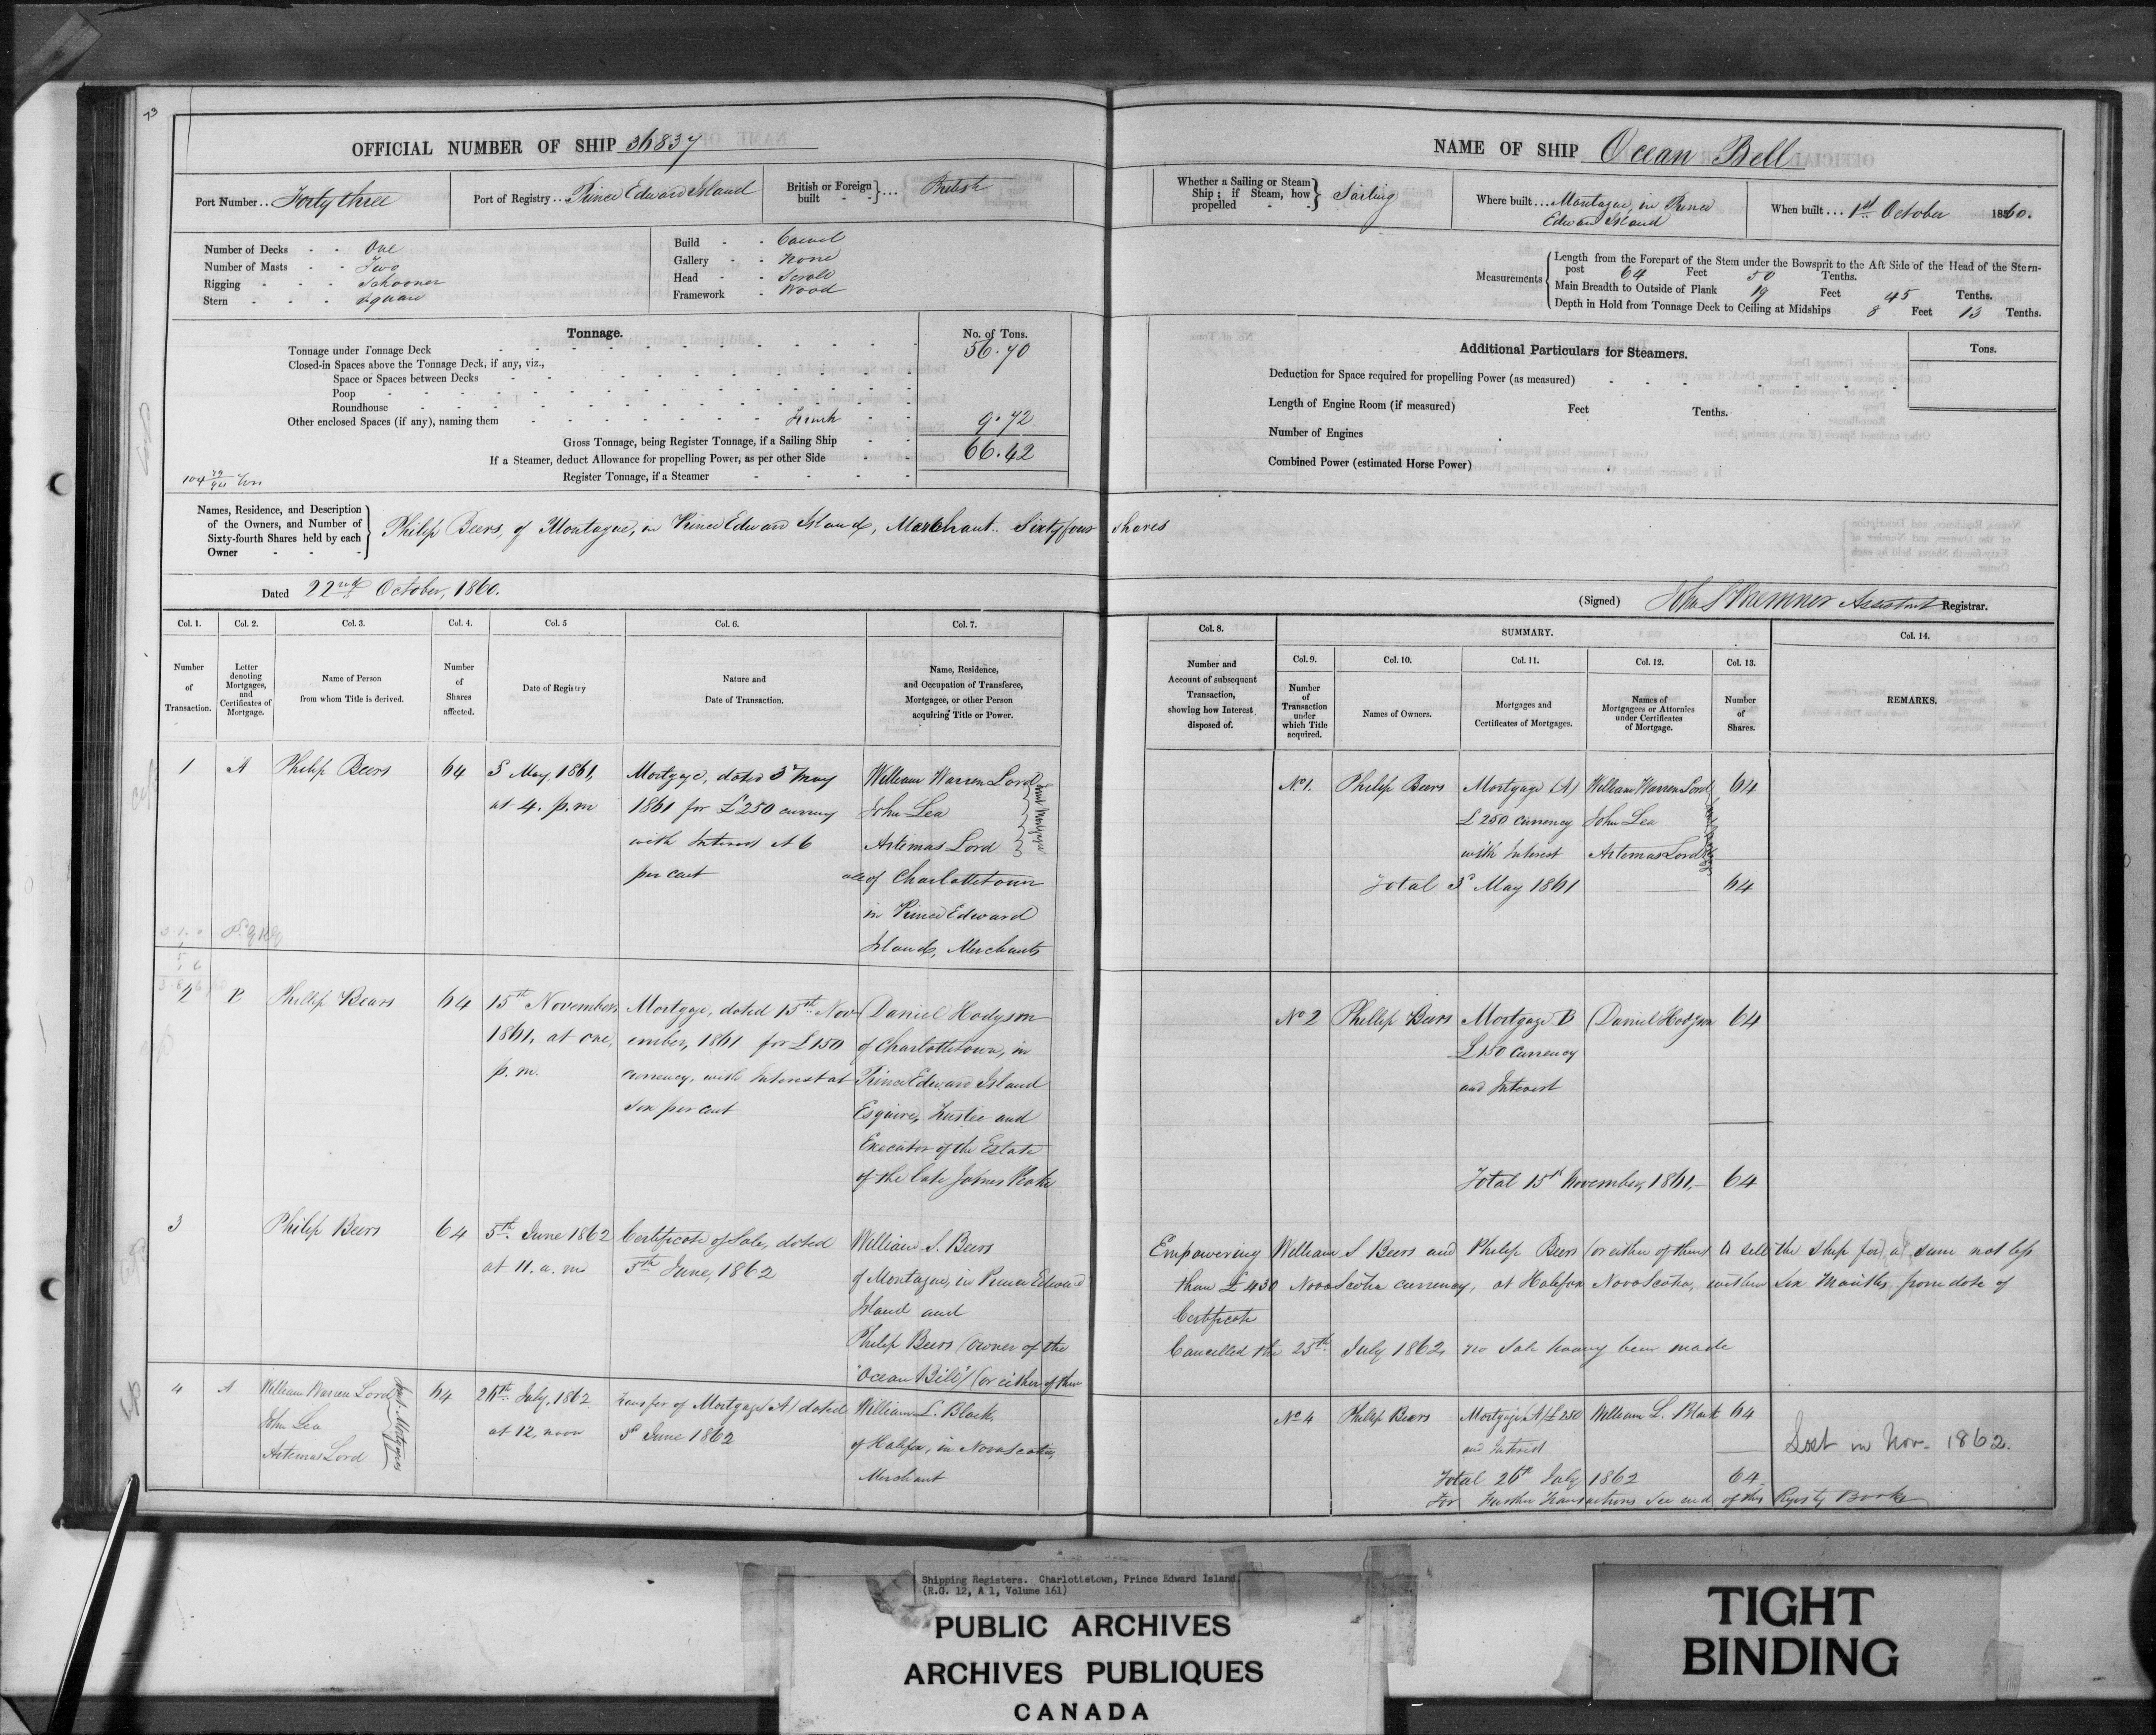 73
OFFICIAL NUMBER OF SHIP 36837
Port Number .. Forty three
Port of Registry .. Prince Edward Island
British or Foreign built } ... British
Number of Decks - - One
Number of Masts - - Two
Rigging - - - Schooner
Stern - - - Square
Build - - Carvel
Gallery - - None
Head - - Scroll
Framework - Wood
Tonnage.
No. of Tons.
Tonnage under Tonnage Deck 56.70
Closed-in Spaces above the Tonnage Deck, if any, viz.,
Space or Spaces between Decks
Poop
Roundhouse
Other enclosed Spaces (if any), naming them Trunk 9.72
Gross Tonnage, being Register Tonnage, if a Sailing Ship 66.42
If a Steamer, deduct Allowance for propelling Power, as per other Side
Register Tonnage, if a Steamer
104 72/94 Tons
Names, Residence, and Description of the Owners, and Number of Sixty-fourth Shares held by each Owner
Philip Beers, of Montague, in Prince Edward Island, Merchant.. Sixty four shares
Dated 22nd October, 1860.
NAME OF SHIP Ocean Bell
Whether a Sailing or Steam Ship; if Steam, how propelled } Sailing
Where built ... Montague, in Prince
Edward Island
When built ... 1st October 1860.
Measurements
Length from the Forepart of the Stem under the Bowsprit to the Aft Side of the Head of the Stern-
post 64 Feet 50 Tenths.
Main Breadth to Outside of Plank 19 Feet 45 Tenths.
Depth in Hold from Tonnage Deck to Ceiling at Midships 8 Feet 13 Tenths.
Additional Particulars for Steamers.
Tons.
Deduction for Space required for propelling Power (as measured)
Length of Engine Room (if measured) Feet Tenths.
Number of Engines
Combined Power (estimated Horse Power)
(Signed) Assistant Registrar.
Col. 1. Col. 2. Col. 3. Col. 4. Col. 5 Col. 6. Col. 7.
Number of Transaction.
Letter denoting Mortgages, and Certificates of Mortgage.
Name of Person from whom Title is derived.
Number of Shares affected.
Date of Registry
Nature and Date of Transaction.
Name, Residence, and Occupation of Transferee, Mortgagee, or other Person acquiring Title or Power.
Col. 8.
Number and Account of subsequent Transaction, showing how Interest disposed of.
SUMMARY.
Col. 9. Col. 10. Col. 11. Col. 12. Col. 13.
Number of Transaction under which Title acquired.
Names of Owners.
Mortgages and Certificates of Mortgages.
Names of Mortgagees or Attornies under Certificates of Mortgage.
Number of Shares.
Col. 14.
REMARKS.
1 A Philip Beers 64 3 May, 1861, Mortgage, dated 3d May William Warren Lord
at 4. p.m 1861 for £250 currency John Lea
with Interest at 6 Artemas Lord
per cent all of Charlottetown
in Prince Edward
Island, Merchants
Joint Mortgagees
No 1. Philip Beers Mortgage (A) William Warren Lord 64
£250 currency John Lea
with Interest Artemas Lord
Joint Mortgagees
Total 3d May 1861 64
2 B Phillip Bears 64 15th November, Mortgage, dated 15th Nov- Daniel Hodgson
1861, at one, ember, 1861 for £150 of Charlottetown, in
p.m. currency, with Interest at Prince Edward Island
Six per cent Esquire, Trustee and
Executor of the Estate
of the late James Peake
No 2 Phillip Beers Mortgage B Daniel Hodgson 64
£150 currency
and Interest
Total 15th November, 1861.- 64
3 Philip Beers 64 5th June 1862 Certificate of Sale, dated William S. Beers
at 11. a.m. 5th June, 1862 of Montague, in Prince Edward
Island and
Philip Beers (owner of the
"Ocean Bell") (or either of them
Empowering William S Beers and Philip Beers (or either of them) to sell the Ship for a sum not less
than £430 Nova Scotia currency, at Halifax Nova Scotia, within Six Months from date of
Certificate
Cancelled the 25th July 1862, no Sale having been made
4 A William Warren Lord 64 26th July, 1862 Transfer of Mortgage (A) dated William L. Black,
John Lea at 12, noon 3d June 1862 of Halifax, in Nova Scotia,
Artemas Lord Merchant
Joint Mortgagees
No 4 Philip Beers Mortgage (A) £250 William L. Black 64
and Interest
Lost in Nov. 1862.
Total 26th July 1862 64
For further Transactions see end of this Registry Book
Shipping Registers. Charlottetown, Prince Edward Island.
(R.G. 12, A 1, Volume 161)
PUBLIC ARCHIVES
ARCHIVES PUBLIQUES
CANADA
TIGHT
BINDING